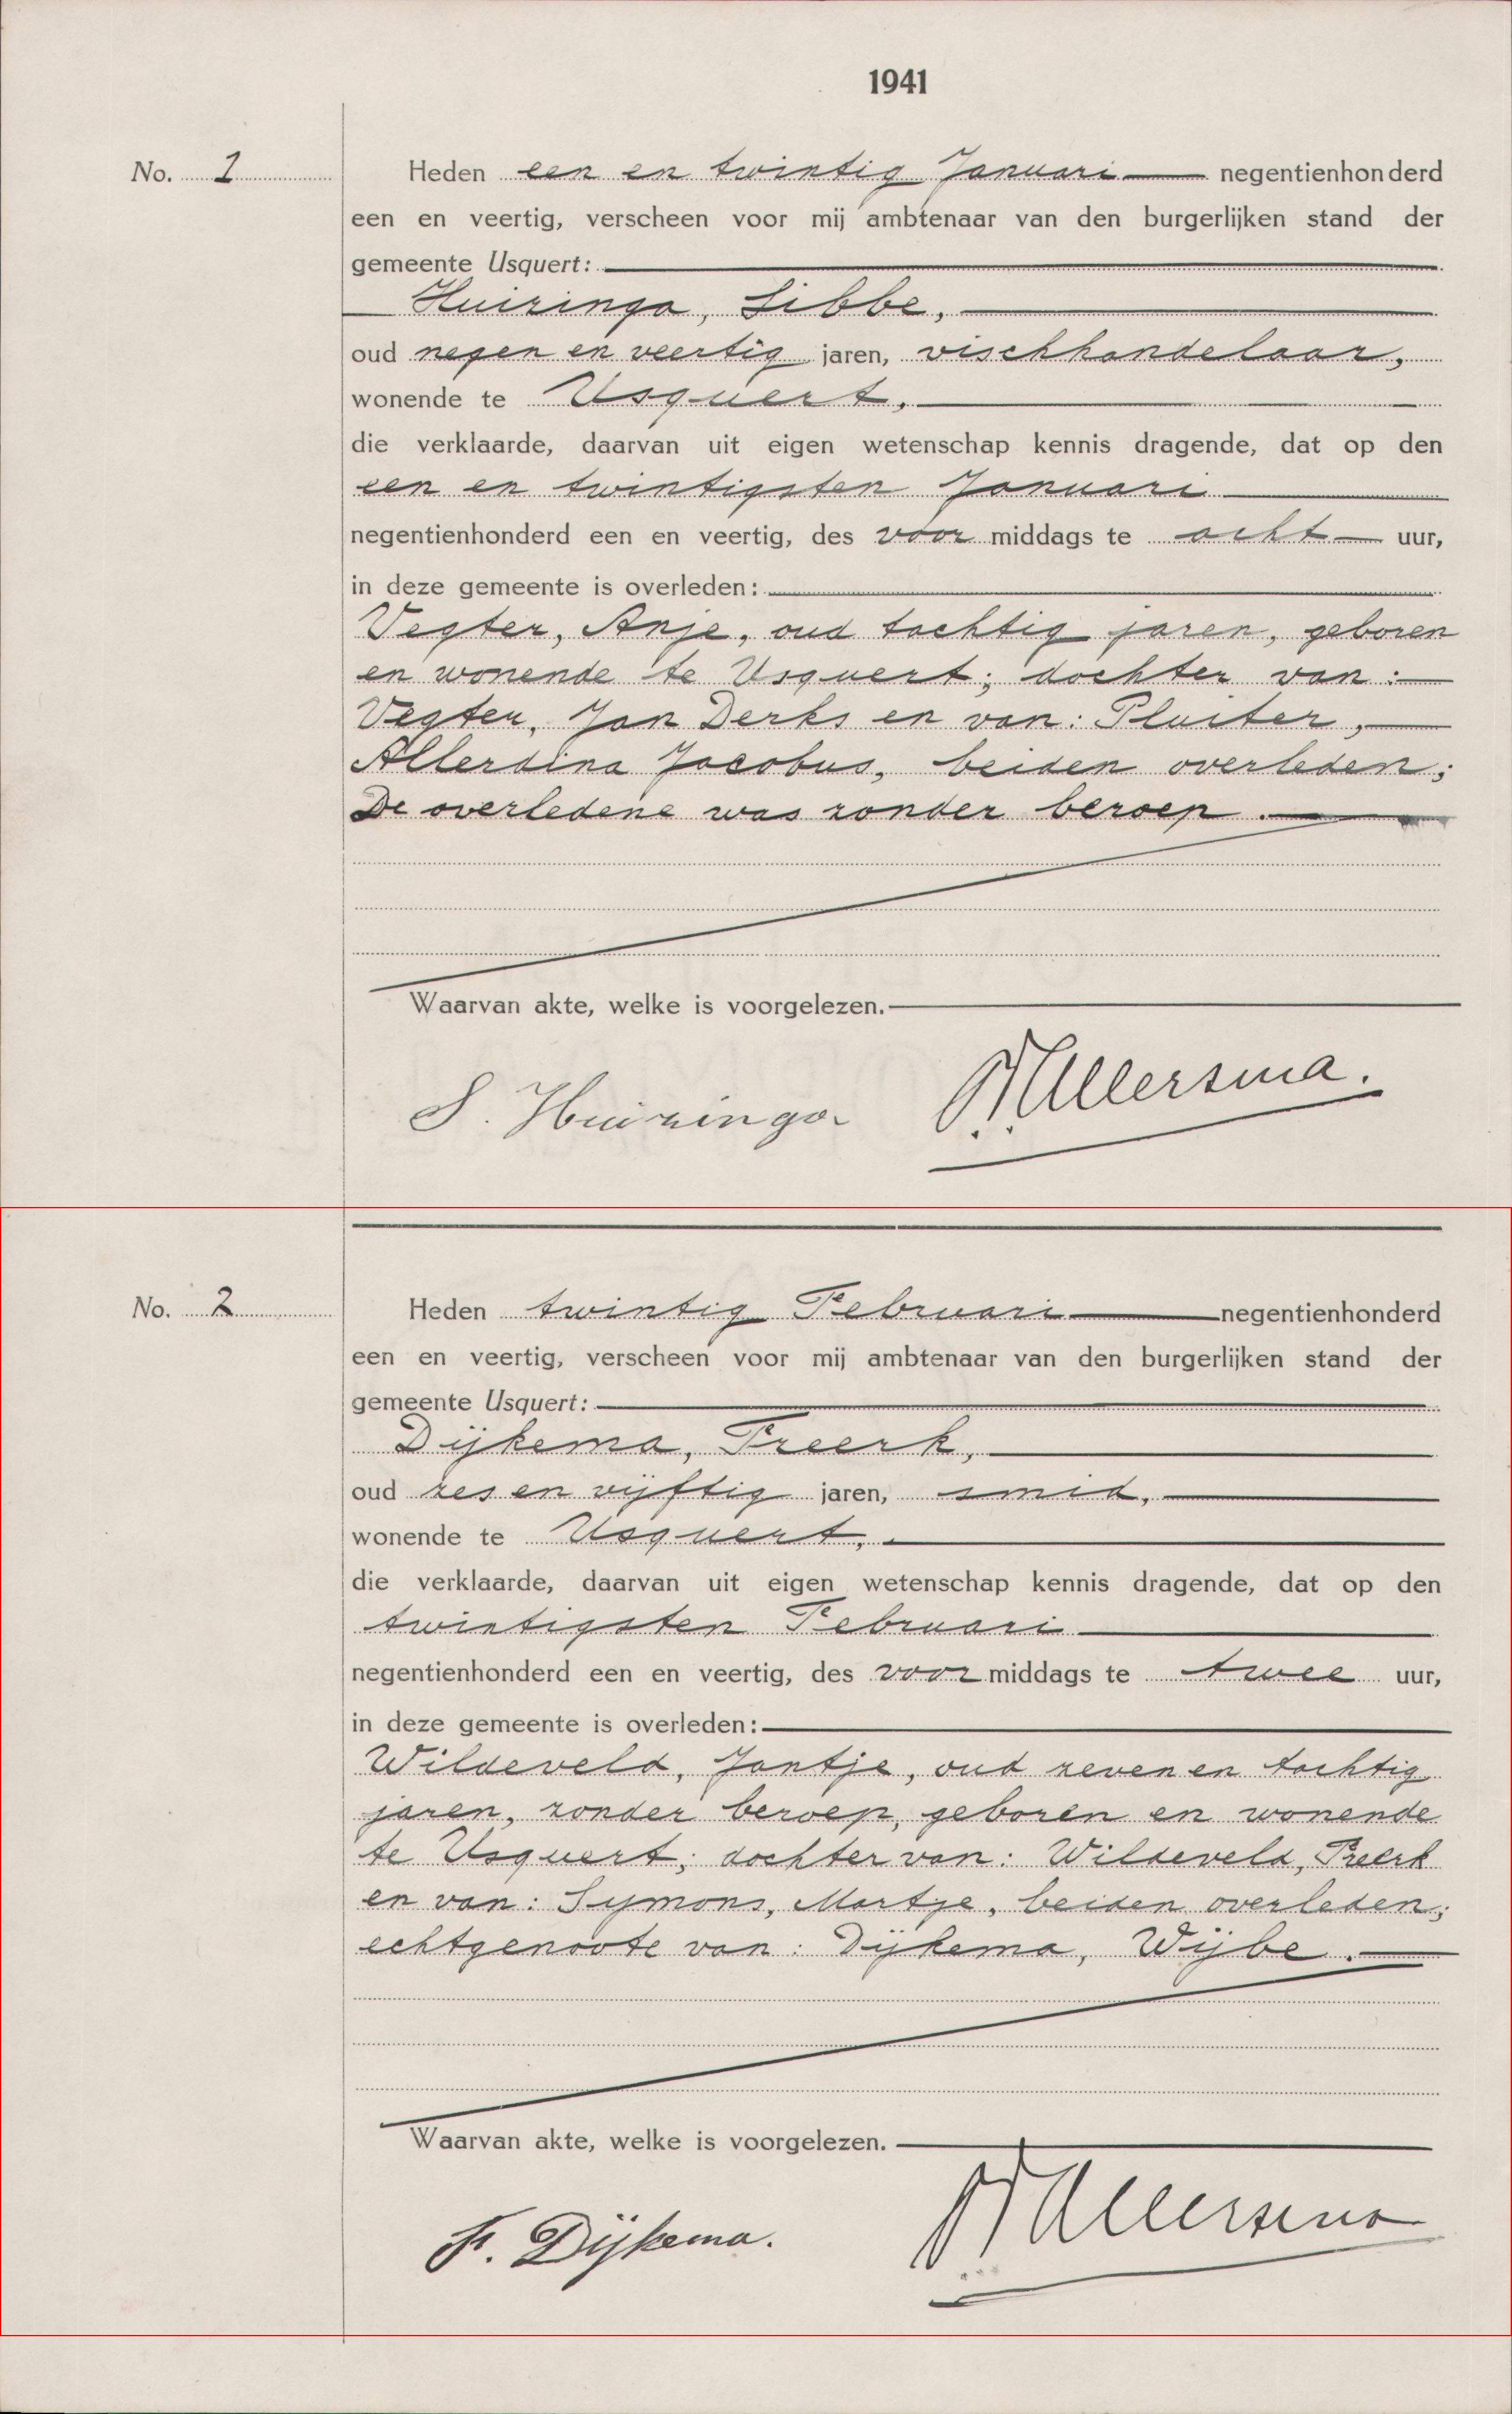 1941
No. 1
Heden een en twintig Januari negentienhonderd
een en veertig, verscheen voor mij ambtenaar van den burgerlijken stand der
gemeente Usquert:
Huizinga, Sibbe,
oud negen en veertig jaren, vischhandelaar,
wonende te Usquert,
die verklaarde, daarvan uit eigen wetenschap kennis dragende, dat op den
een en twintigsten Januari
negentienhonderd een en veertig, des voor middags te acht uur,
in deze gemeente is overleden:
Vegter, Anje, oud tachtig jaren, geboren
en wonende te Usquert; dochter van:
Vegter, Jan Derks en van: Pluiter,
Allerdina Jacobus, beiden overleden;
De overledene was zonder beroep.
Waarvan akte, welke is voorgelezen.
S. Huizinga
Allersma.
No. 2
Heden twintig Februari negentienhonderd
een en veertig, verscheen voor mij ambtenaar van den burgerlijken stand der
gemeente Usquert:
Dijkema, Freerk,
oud zes en vijftig jaren, smid,
wonende te Usquert,
die verklaarde, daarvan uit eigen wetenschap kennis dragende, dat op den
twintigsten Februari
negentienhonderd een en veertig, des voor middags te twee uur,
in deze gemeente is overleden:
Wildeveld, Jantje, oud zeven en tachtig
jaren, zonder beroep, geboren en wonende
te Usquert; dochter van: Wildeveld, Freerk
en van: Symons, Martje, beiden overleden;
echtgenoote van: Dijkema, Wijbe.
Waarvan akte, welke is voorgelezen.
F. Dijkema.
Allersma